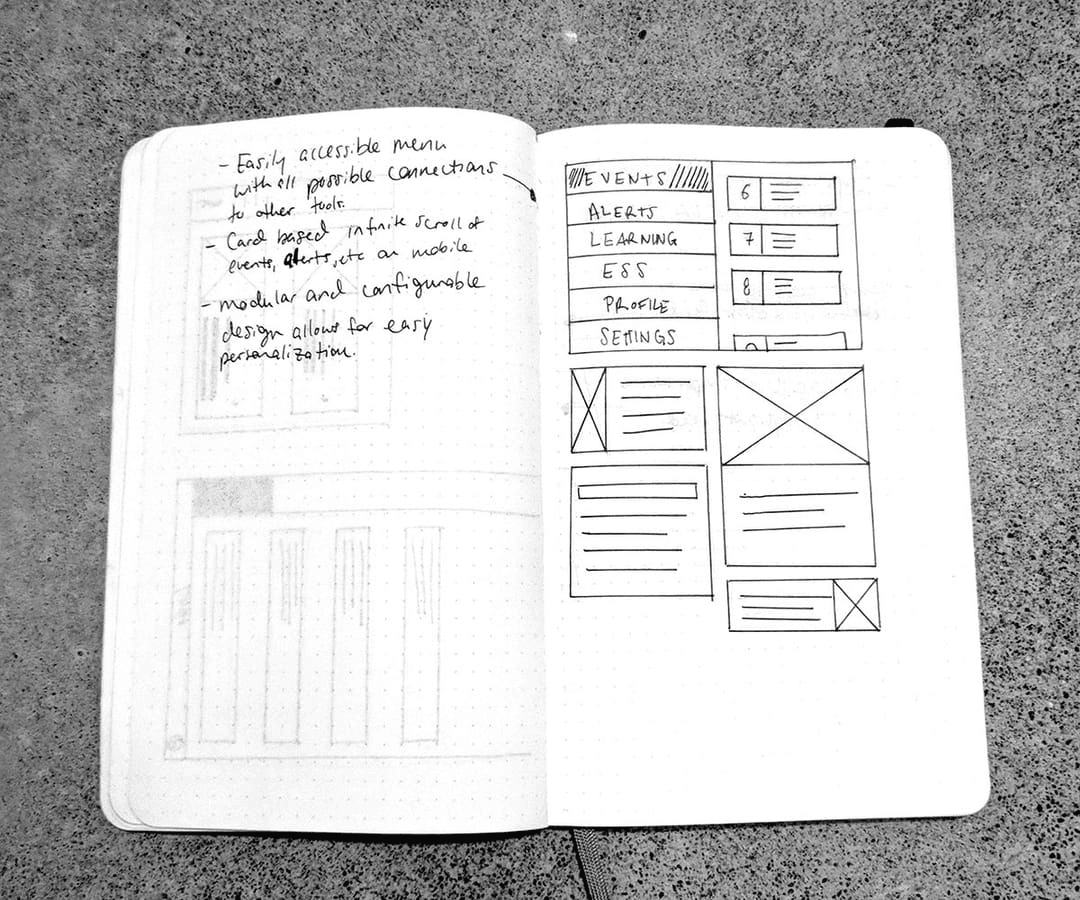 - Easily accessible menu
with all possible connections
to other tools.
- Card based infinite scroll of
events, alerts, etc on mobile
- modular and configurable
design allows for easy
personalization.
EVENTS
ALERTS
LEARNING
ESS
PROFILE
SETTINGS
6
7
8